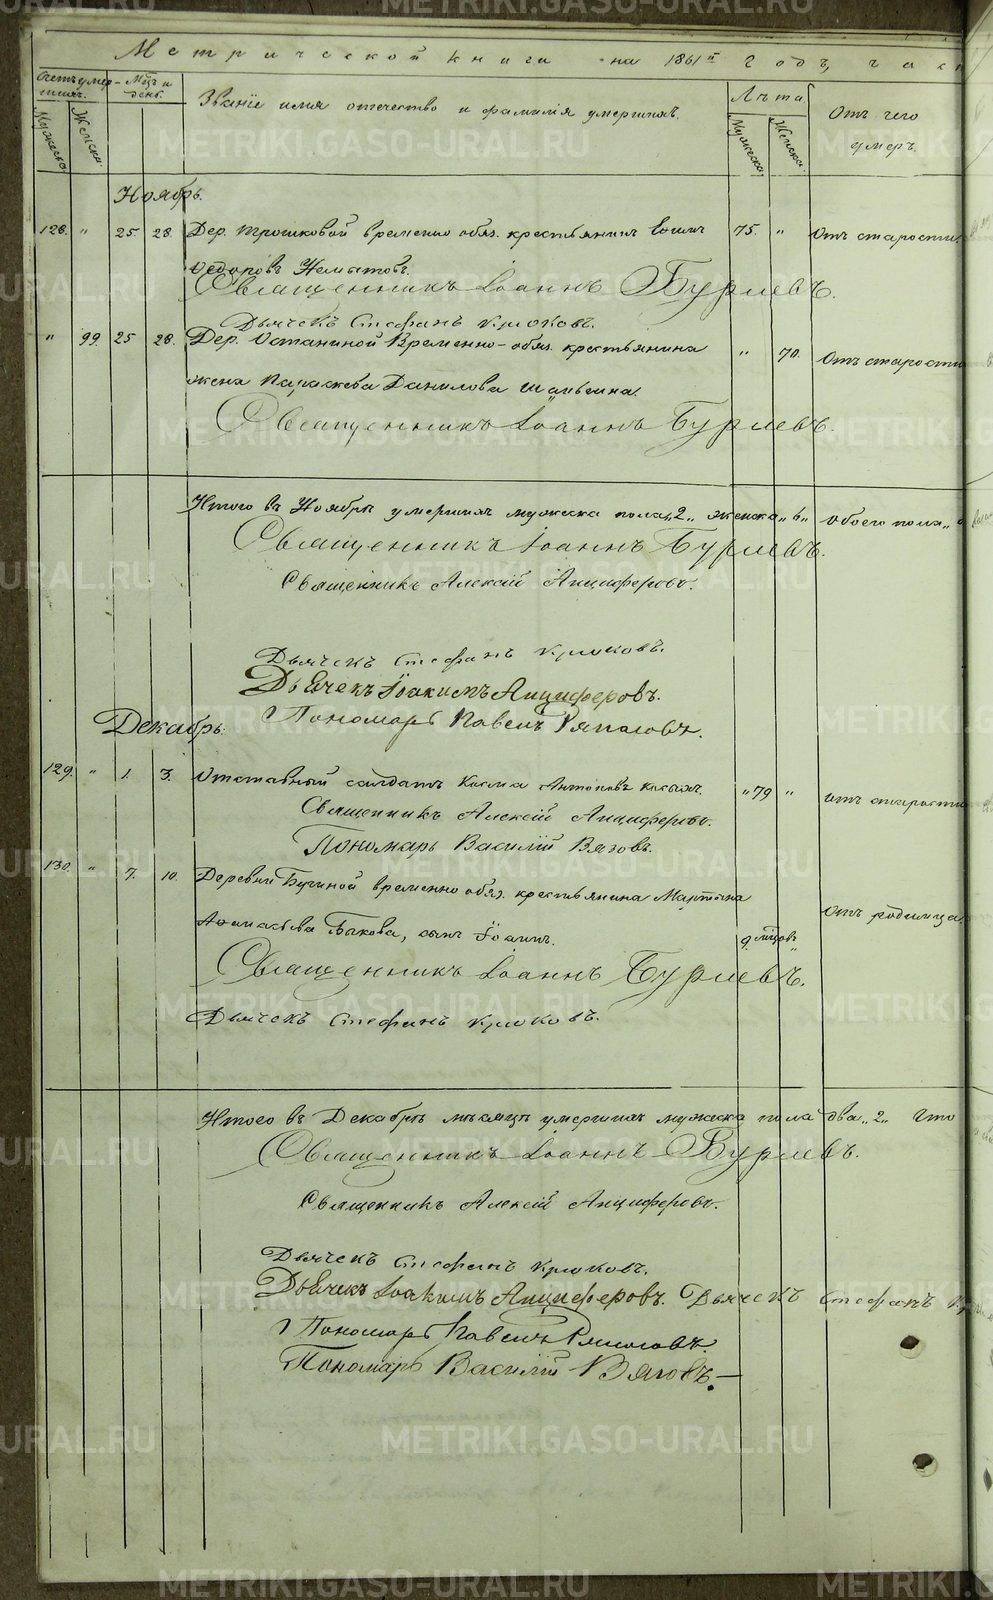 Метрической книги на 1861й годъ, част
Счетъ умер-
шихъ.
Мужеска.
Женска.
Мцъ и
день.
Званіе имя отечество и фамилія умершихъ.
Лѣта
Мужеска.
Женска.
Отъ чего
умеръ.
Ноябрь.
128. " 25 28. Дер. Трошковой временно обяз. крестьянинъ 75. " Отъ старости
Ѳедоровъ
Священникъ Іоаннъ Бурлевъ.
Дьячекъ Стефанъ Крюковъ.
" 99. 25 28. Дер. Останиной Временно-обяз. крестьянина " 70. Отъ старости
жена Параскева Данилова
Священникъ Іоаннъ Бурлевъ.
Итого въ Ноябрѣ умершихъ мужеска пола „2„ женска „6„ обоего пола„
Священникъ Іоаннъ Бурлевъ.
Священникъ Алексій Анциферовъ.
Дьячекъ Стефанъ Крюковъ.
Дьячекъ Іоакимъ Анциферовъ.
Пономарь Павелъ Ряпасовъ.
Декабрь.
129. " 1. 3. Отставный солдатъ Косма Антоновъ „79 " отъ старости
Священникъ Алексій Анциферовъ.
Пономарь Василій Вязовъ.
130. " 7. 10. Деревни Бучиной временно обяз. крестьянина Мартина
Аѳанасьева Быкова, сынъ Іоаннъ. 9 мцовъ отъ родимца.
Священникъ Іоаннъ Бурлевъ.
Дьячекъ Стефанъ Крюковъ.
Итого въ Декабрѣ мѣсяцѣ умершихъ мужеска пола два „2„ Что
Священникъ Іоаннъ Бурлевъ.
Священникъ Алексій Анциферовъ.
Дьячекъ Стефанъ Крюковъ.
Дьячекъ Іоакимъ Анциферовъ. Дьячекъ Стефанъ
Пономарь Павелъ Ряпасовъ.
Пономарь Василій Вязовъ.
METRIKI.GASO-URAL.RU